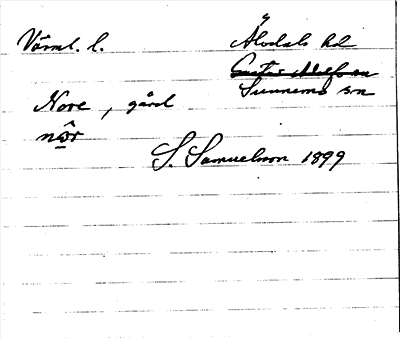 Värml. l. Älvdals hd
Gustav Adolfs sn
Sunnemo sn
Nore, gård
nôr
S. Samuelsson 1899